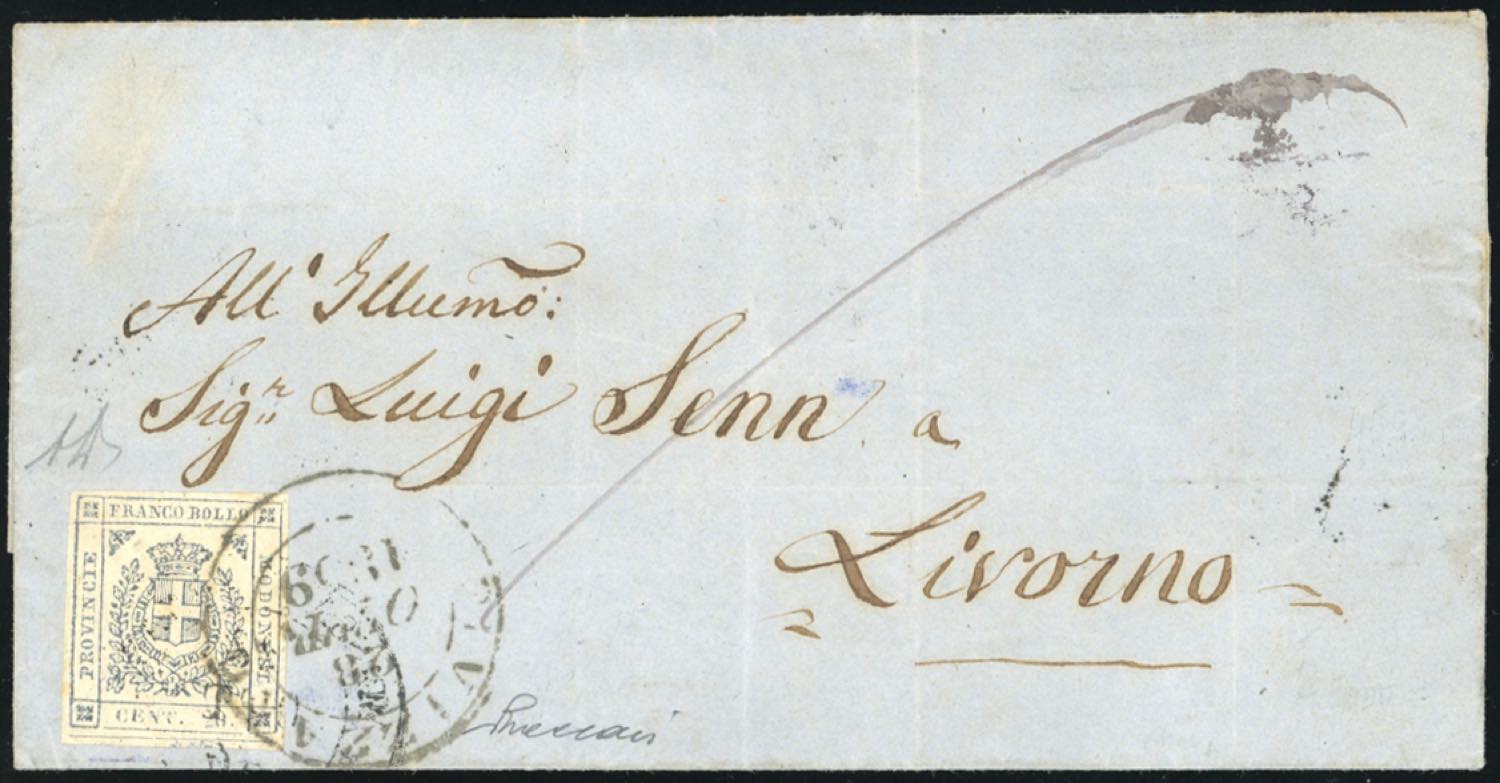 All' Illumo:
Sigr. Luigi Senn a
Livorno
FRANCO BOLLO
PROVINCIE
MODONESI
CENT. 20.
1859